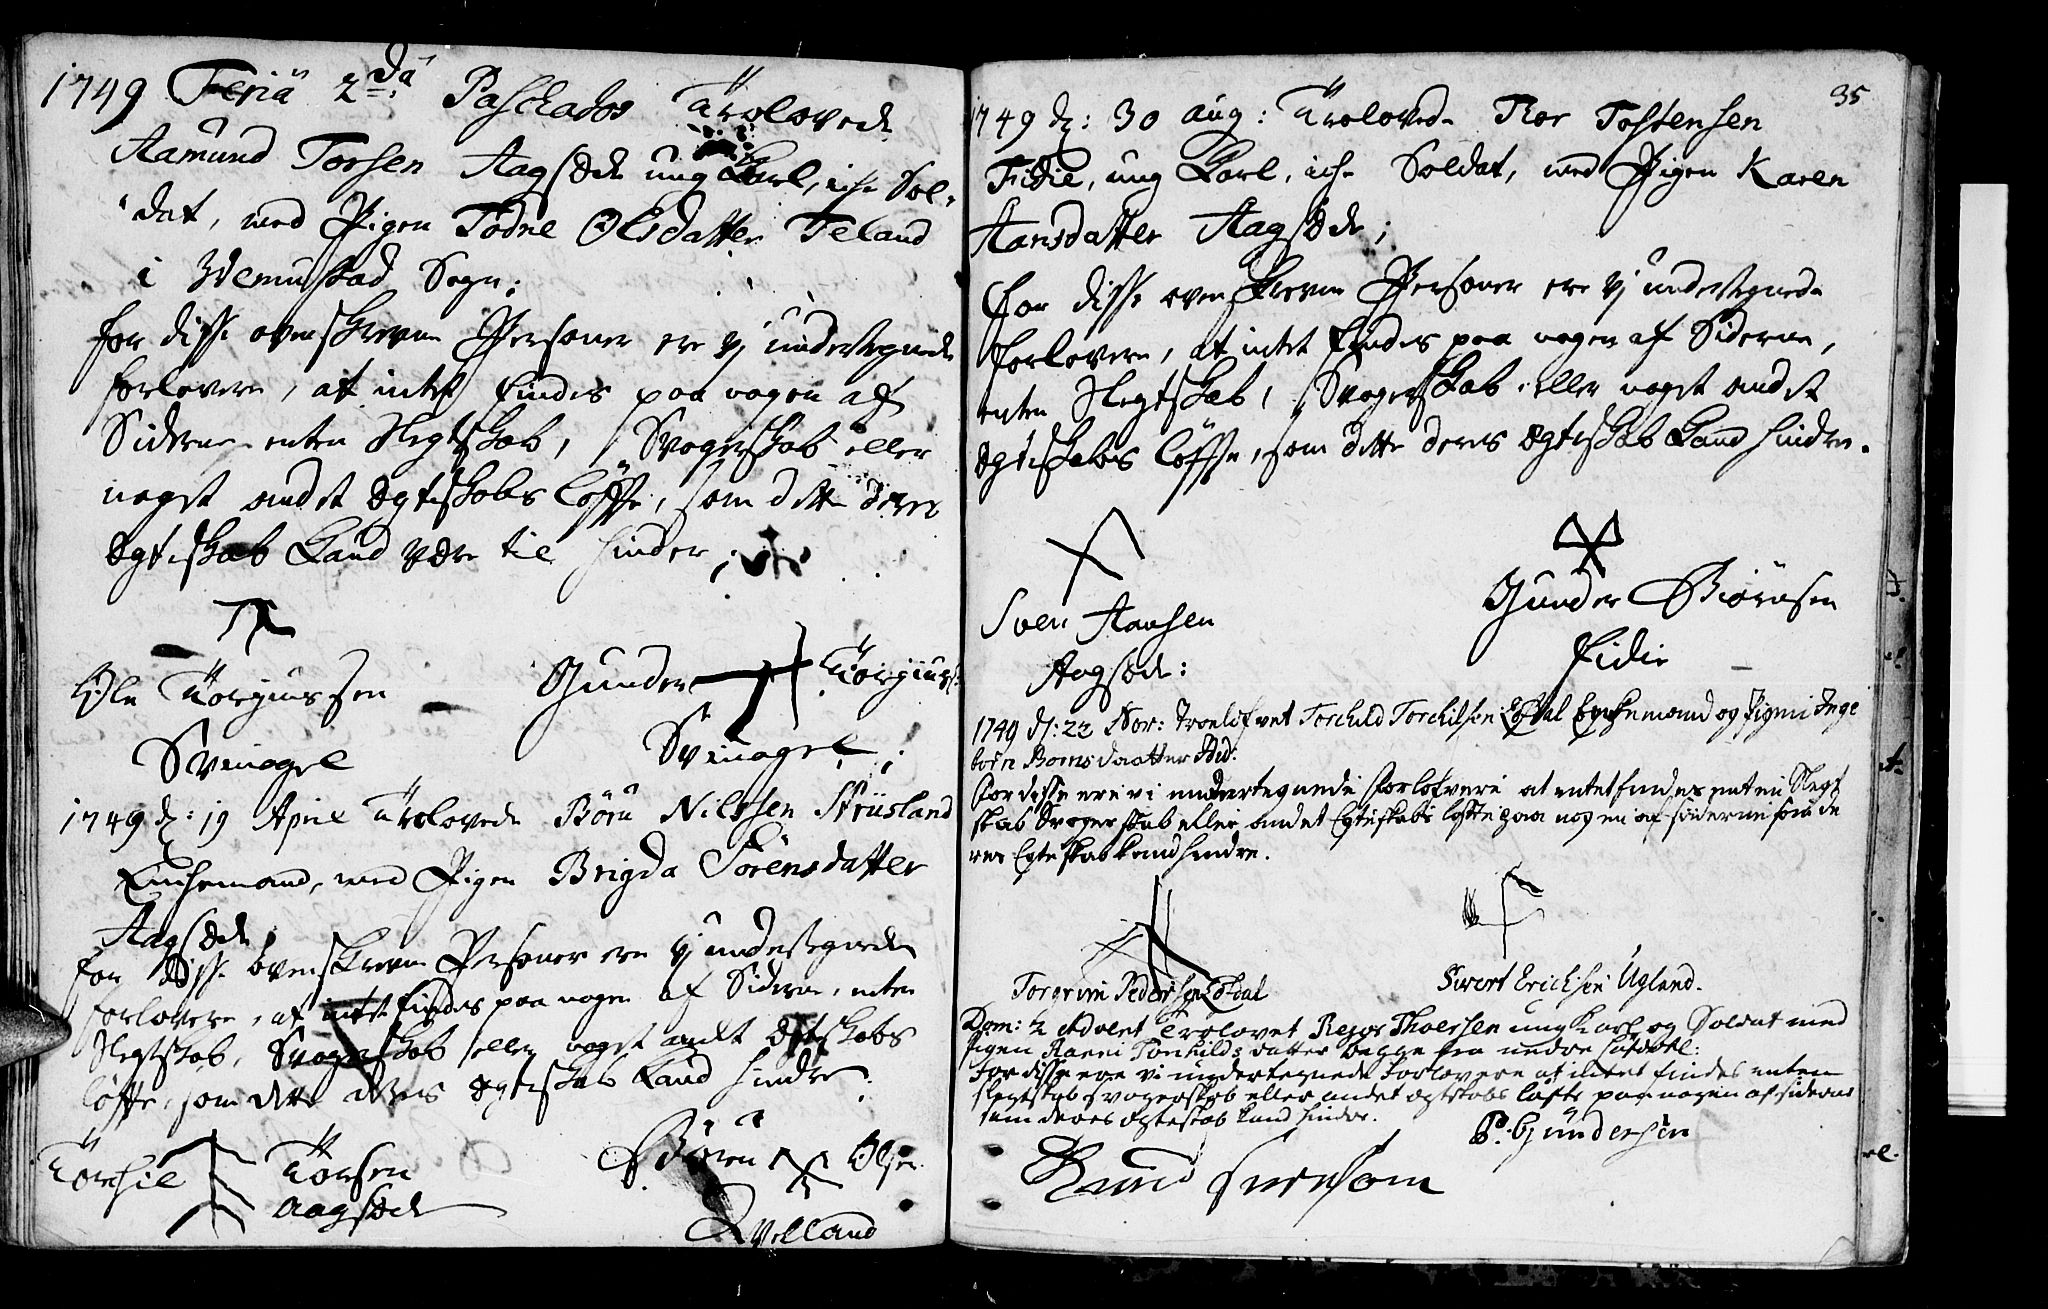 1749 Feria 2da Paschatos Trolovede
Aamund Torsen Aagsæde ung Karl, iche Sol-
dat, med Pigen Todne Olsdatter Teland
i Wennistad Sogn;
for disse ovenskrevne Personer ere vj undertegnede
forlovere, at intet findes paa nogen af
Siderne enten Slegtskab, Svogerskab eller
noget andet Ægteskabs löffte, som dette deres
Ægteskab kand være til hinder;
Ole Torgiussen
Svinagel
Gunder Torgiuss:
Svinagel;
1749 d: 19 April Trolovede Börn Nilssen
Enchemand, med Pigen Brigda Sörensdatter
Aagsæde
for disse ovenskrevne Personer ere vj undertegnede
forlovere, at intet findes paa nogen af Siderne, enten
Slegtskab, Svogerskab eller noget andet Ægteskabs
löffte, som dette deres Ægteskab kand hindre.
Torkil Torsen
Aagsæde
Biören Olsen
Qvelland
35
1749 d: 30 Aug: Trolovede Tor Tostensen
Fidie, ung Karl, iche Soldat, med Pigen Karen
Hansdatter Aagsæde;
for disse ovenskrevne Personer ere vj undertegnede
forlovere, at intet findes paa nogen af Siderne,
enten Slegtskab, Svogerskab eller noget andet
Ægteskabs löffte, som dette deres Ægteskab kand hindre.
Sven Hansen
Aagsæde:
Gunder Biörnsen
Fidie
1749 d: 23 Nov: Troelofvet Torchild Torchilsen Enkemand og Pigen Inge
borr
for disse ere vi undertegnede forlofvere at entet findes enten Slegt
skab Svogerskab eller andet Egteskabs lofte paa nogen af siderne som de
res Egteskab kand hindre.
Torgrim Pedersen
Sivert Erichsen Ugland.
Dom: 2 Advent Trolovet Thorsen ung Karl og Soldat med
Pigen Ranni Torkilds datter begge fra nedre
For disse ere vi undertegnede Forlovere at intet findes enten
slegtskab svogerskab eller andet ægteskabs löfte paa nogen af siderne
som deres ægteskab kand hindre.
P. Gundersen
Knud Svenson